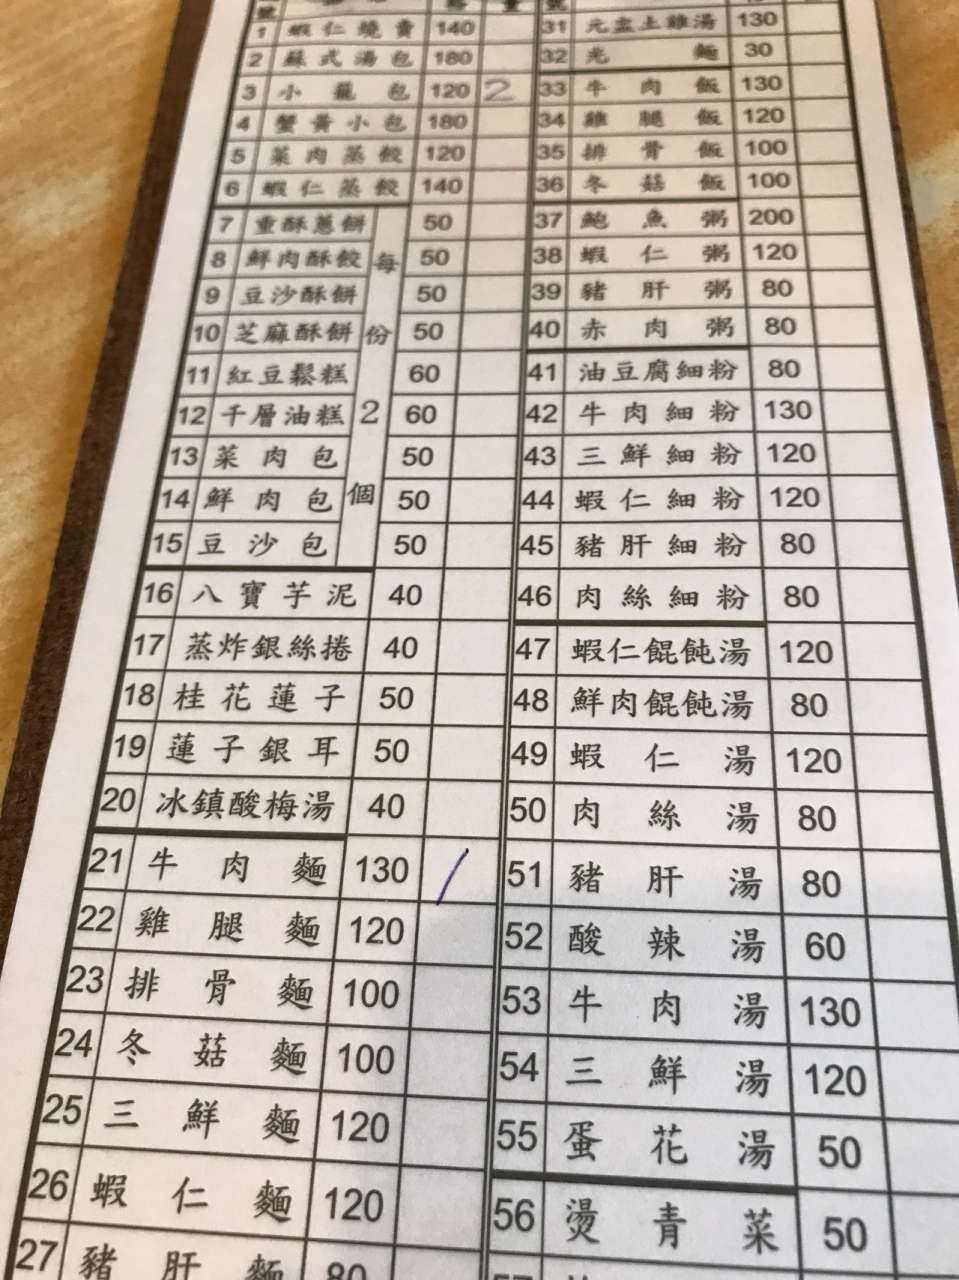 號 量 號
1 蝦仁燒賣 140
2 蘇式湯包 180
3 小籠包 120 2
4 蟹黃小包 180
5 菜肉蒸餃 120
6 蝦仁蒸餃 140
每份2個
7 重酥蔥餅 50
8 鮮肉酥餃 50
9 豆沙酥餅 50
10 芝麻酥餅 50
11 紅豆鬆糕 60
12 千層油糕 60
13 菜肉包 50
14 鮮肉包 50
15 豆沙包 50
16 八寶芋泥 40
17 蒸炸銀絲捲 40
18 桂花蓮子 50
19 蓮子銀耳 50
20 冰鎮酸梅湯 40
21 牛肉麵 130 /
22 雞腿麵 120
23 排骨麵 100
24 冬菇麵 100
25 三鮮麵 120
26 蝦仁麵 120
27 豬肝麵 80
31 元盅土雞湯 130
32 光麵 30
33 牛肉飯 130
34 雞腿飯 120
35 排骨飯 100
36 冬菇飯 100
37 鮑魚粥 200
38 蝦仁粥 120
39 豬肝粥 80
40 赤肉粥 80
41 油豆腐細粉 80
42 牛肉細粉 130
43 三鮮細粉 120
44 蝦仁細粉 120
45 豬肝細粉 80
46 肉絲細粉 80
47 蝦仁餛飩湯 120
48 鮮肉餛飩湯 80
49 蝦仁湯 120
50 肉絲湯 80
51 豬肝湯 80
52 酸辣湯 60
53 牛肉湯 130
54 三鮮湯 120
55 蛋花湯 50
56 燙青菜 50